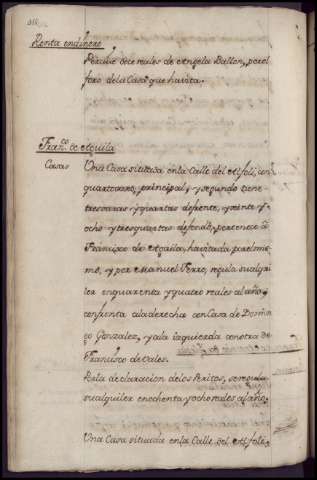 Renta en dinero
Percive doce reales de Angela Ballon, por el
foro de la Casa que havita.
Franco. de Aguila
Casas
Una Casa situada en la Calle del Asfoli, con
quarto vaxo, principal, y segundo tiene
tres varas y quartas de frente, y veinte y
ocho y tres quartas de fondo, pertenece à
Francisco de Aguila, havitada por el mis-
mo, y por Manuel Ferro, regula su alqui-
ler en quarenta y quatro reales al año,
confrenta a la derecha con Casa de Domin-
go Gonzalez, y a la izquierda con otra de
Francisco de Oales.
Por la declaracion de los Peritos, se regula
su alquiler en ochenta y ocho reales al año.
Una Casa situada en la Calle del Asfoli,